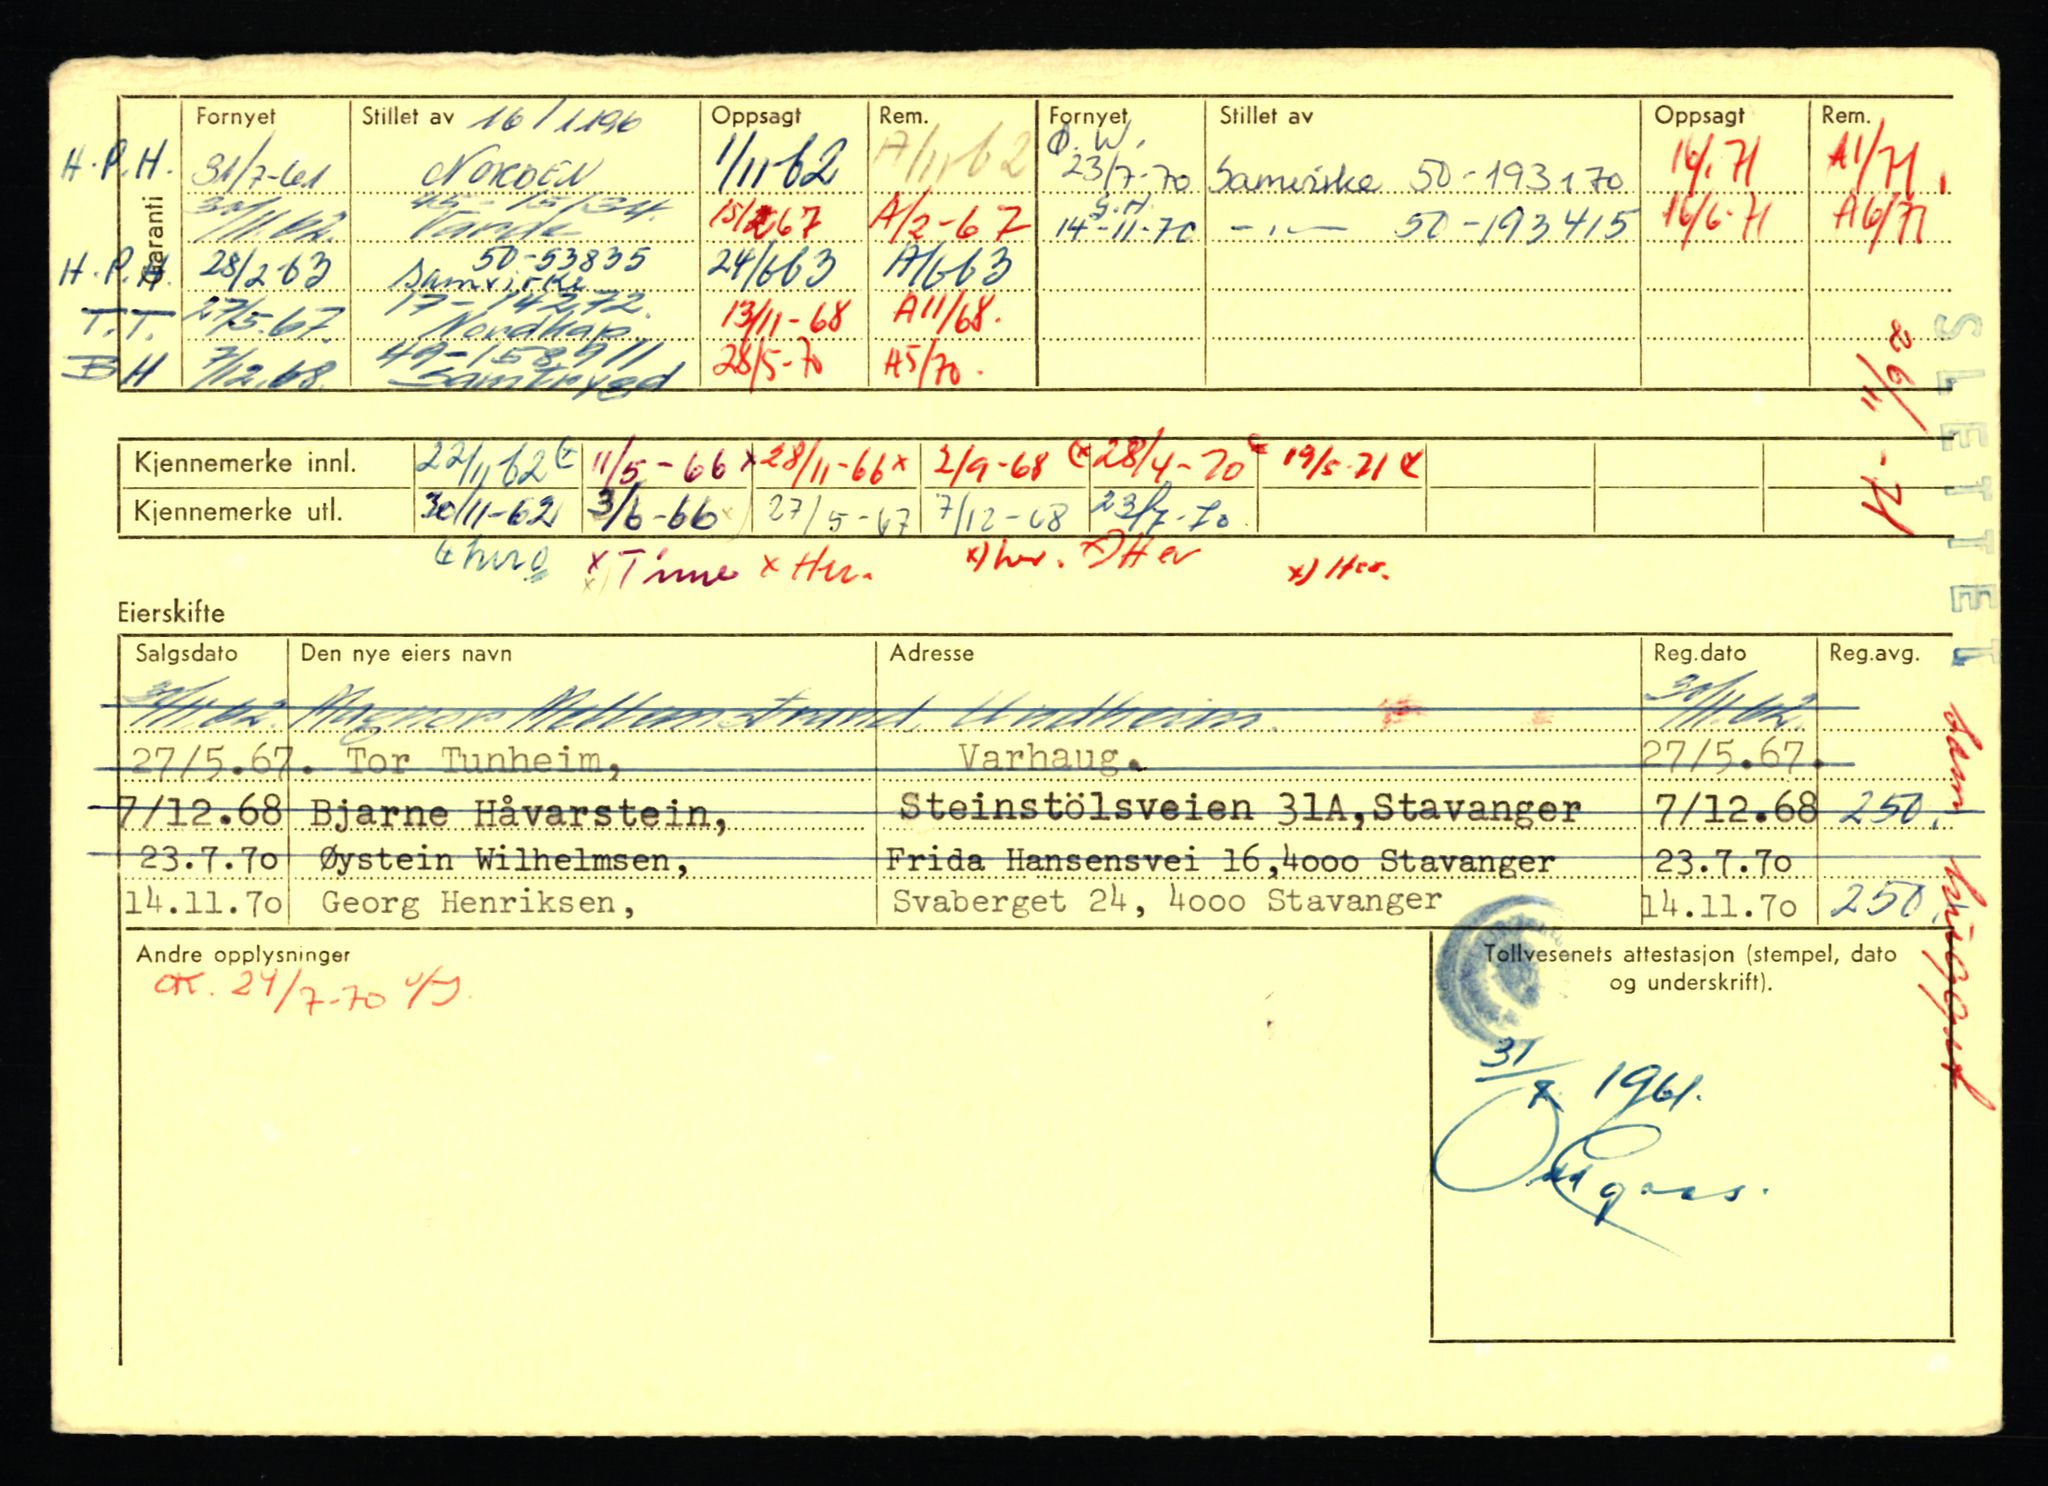 Garanti
Fornyet Stillet av 16/1196 Oppsagt Rem. Fornyet Stillet av Oppsagt Rem.
H.P.H. 31/7-61 NORDEN 1/11-62 A/11-62 Ø.W. 23/7-70 Samvirke 50-193170 16/1-71 A1/71
30/11.62. 45-15134. Varde 15/2-67 A/2-67 G.H. 14-11-70 -"- 50-193415 16/6-71 A6/71
H.P.H. 28/2-63 50-53835 Samvirke 24/6 63 A/6 63
T.T. 27/5.67. 17-14272. Nordkap 13/11-68 A11/68.
B H 7/12.68. 49-158911 Samtrygd 28/5-70 A5/70.
Kjennemerke innl. 22/11 62 11/5-66 x 28/11-66 x 2/9-68 28/4-70 19/5-71
Kjennemerke utl. 30/11-62 3/6-66 27/5-67 7/12-68 23/7-70
x Time x Her. x) her. x) Her x) Her.
Eierskifte
Salgsdato Den nye eiers navn Adresse Reg.dato Reg.avg.
30/11.62. Magnor Mellomstrand, Undheim. 30/11.62.
27/5.67. Tor Tunheim, Varhaug. 27/5.67.
7/12.68 Bjarne Håvarstein, Steinstölsveien 31A,Stavanger 7/12.68 250.
23.7.70 Øystein Wilhelmsen, Frida Hansensvei 16,4000 Stavanger 23.7.70
14.11.70 Georg Henriksen, Svaberget 24, 4000 Stavanger 14.11.70 250.
Andre opplysninger
OK. 24/7-70
Tollvesenets attestasjon (stempel, dato
og underskrift).
31/7 1961.
SLETTET
26/11-71
som hugget